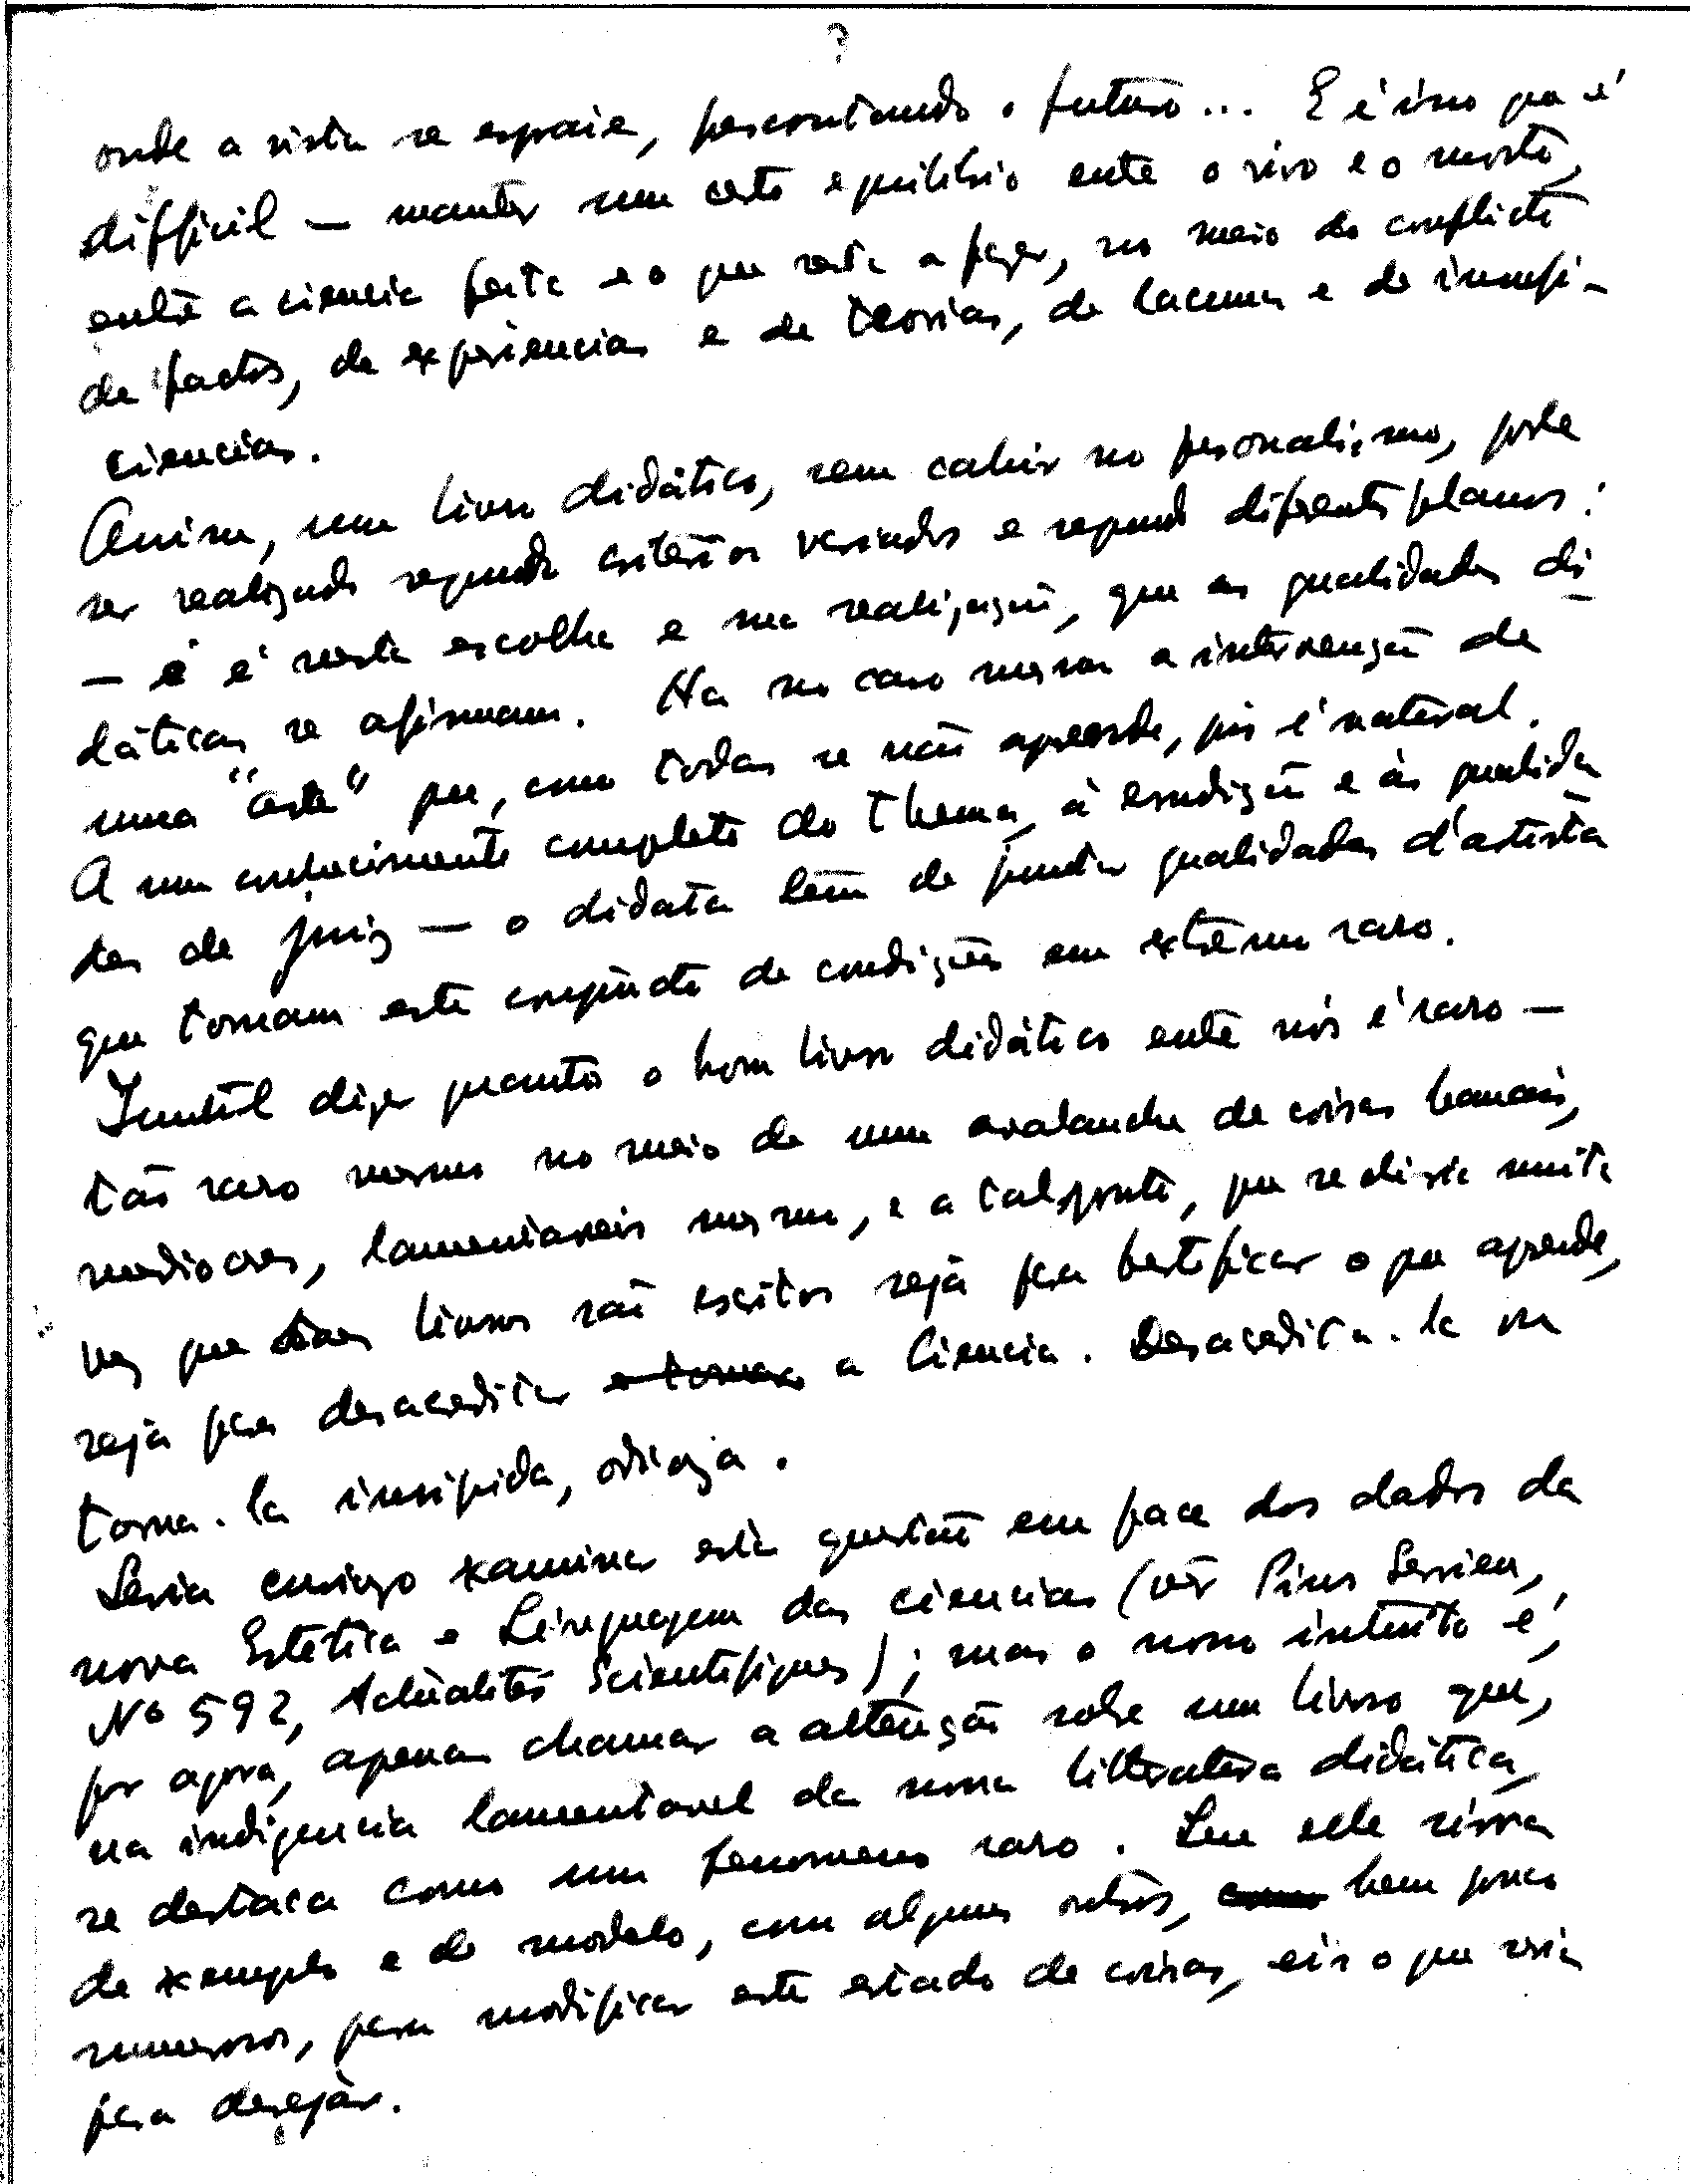 ?
onde a vista se espraie, perscrutando o futuro... E é isso que é
difficil — manter um certo equilibrio entre o vivo e o morto,
entre a ciencia feita e o que resta a fazer, no meio do conflicto
de factos, de experiencias e de teorias, de lacunas e de insufi-
ciencias.
Assim, um livro didático, sem cahir no personalismo, pode
ser realizado segundo critérios variados e segundo diferentes planos:
— e é nesta escolha e na realização, que as qualidades di
dáticas se afirmam. Ha no caso mesmo a intervenção de
uma "arte" que, como todas se não aprende, pois é natural.
A um conhecimento completo do thema, á erudição e ás qualida
des de juiz — o didata tem de juntar qualidades d'artista
que tornam este conjuncto de condições em extremo raro.
Inutil dizer quanto o bom livro didático entre nós é raro —
tão raro mesmo no meio de uma avalanche de coisas banais,
mediocres, lamentaveis mesmo, e a tal ponto, que se diria muita
vez que taes livros são escritos seja para bestificar o que aprende,
seja para desacreditar e tornar a Ciencia. Desacredita-la ou
torna-la insipida, odiosa.
Seria curioso examinar esta questão em face dos dados da
nova Estética e Linguagem das ciencias (vêr Pius Servien,
Nº 592, Actualités Scientifiques); mas o nosso intuito é,
por agora, apenas chamar a attenção sobre um livro que,
na indigencia lamentavel da nossa litteratura didática,
se destaca como um fenomeno raro. Que elle sirva
de exemplo e de modelo, com alguns outros, como bem pouco
numerosos, para modificar este estado de coisas, eis o que seria
para desejar.